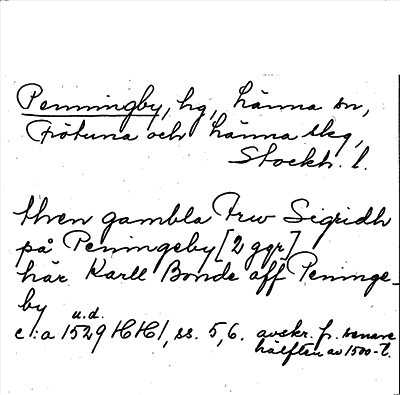 Penningby, hg, Länna sn,
Frötuna och Länna skg,
Stockh. l.
then gambla Frw Sigridh
på Peningeby [2 ggr]
här Karll Bonde aff Peninge-
by
u.d.
c:a 1529 HH 1, ss. 5, 6. avskr. fr. senare
hälften av 1500-t.